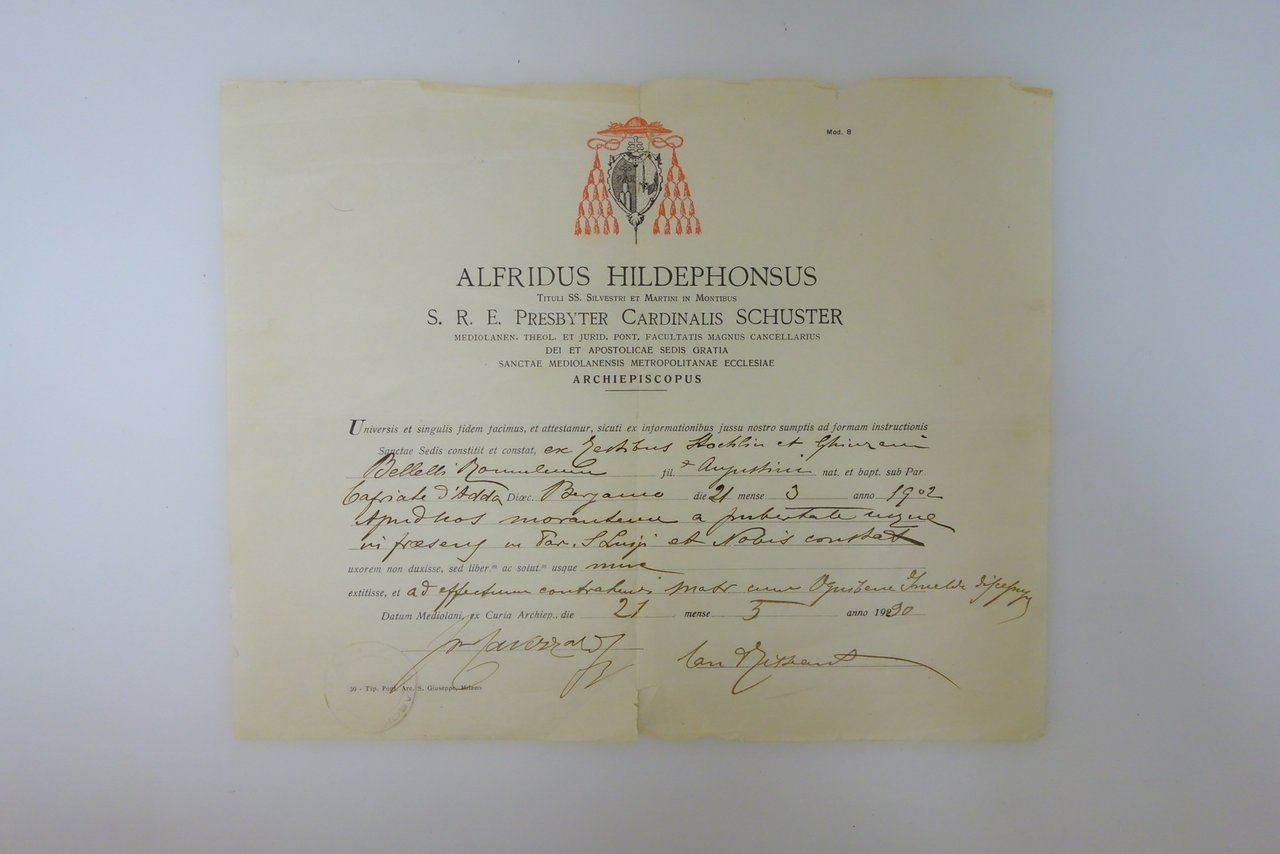 Mod. 8
ALFRIDUS HILDEPHONSUS
TITULI SS. SILVESTRI ET MARTINI IN MONTIBUS
S. R. E. PRESBYTER CARDINALIS SCHUSTER
MEDIOLANEN. THEOL. ET JURID. PONT. FACULTATIS MAGNUS CANCELLARIUS
DEI ET APOSTOLICAE SEDIS GRATIA
SANCTAE MEDIOLANENSIS METROPOLITANAE ECCLESIAE
ARCHIEPISCOPUS
Universis et singulis fidem facimus, et attestamur, sicuti ex informationibus jussu nostro sumptis ad formam instructionis
Sanctae Sedis constitit et constat, ex testibus et
Bellelli fil. Augustini nat. et bapt. sub Par.
d'Adda Diœc. Bergamo die 21 mense 3 anno 1902
Apud nos morantem a pubertate usque
in Par. S Luigi et Nobis constat
uxorem non duxisse, sed liber.m ac solut.m usque nunc
extitisse, et ad effectum matr cum
Datum Mediolani, ex Curia Archiep., die 21 mense 5 anno 1930
30 - Tip. Pont. Arc. S. Giuseppe, Milano